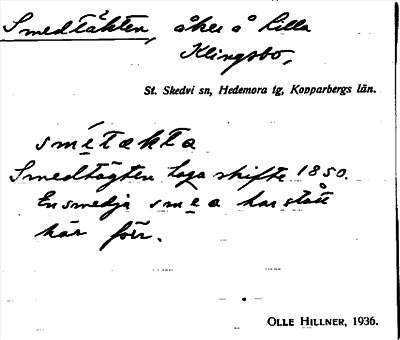 Smedtäkten, åker å Lilla
Klingsbo,
St. Skedvi sn, Hedemora tg, Kopparbergs län.
smétäkta
Smedtägten Laga skifte 1850.
En smedja smea har stått
här förr.
OLLE HILLNER, 1936.